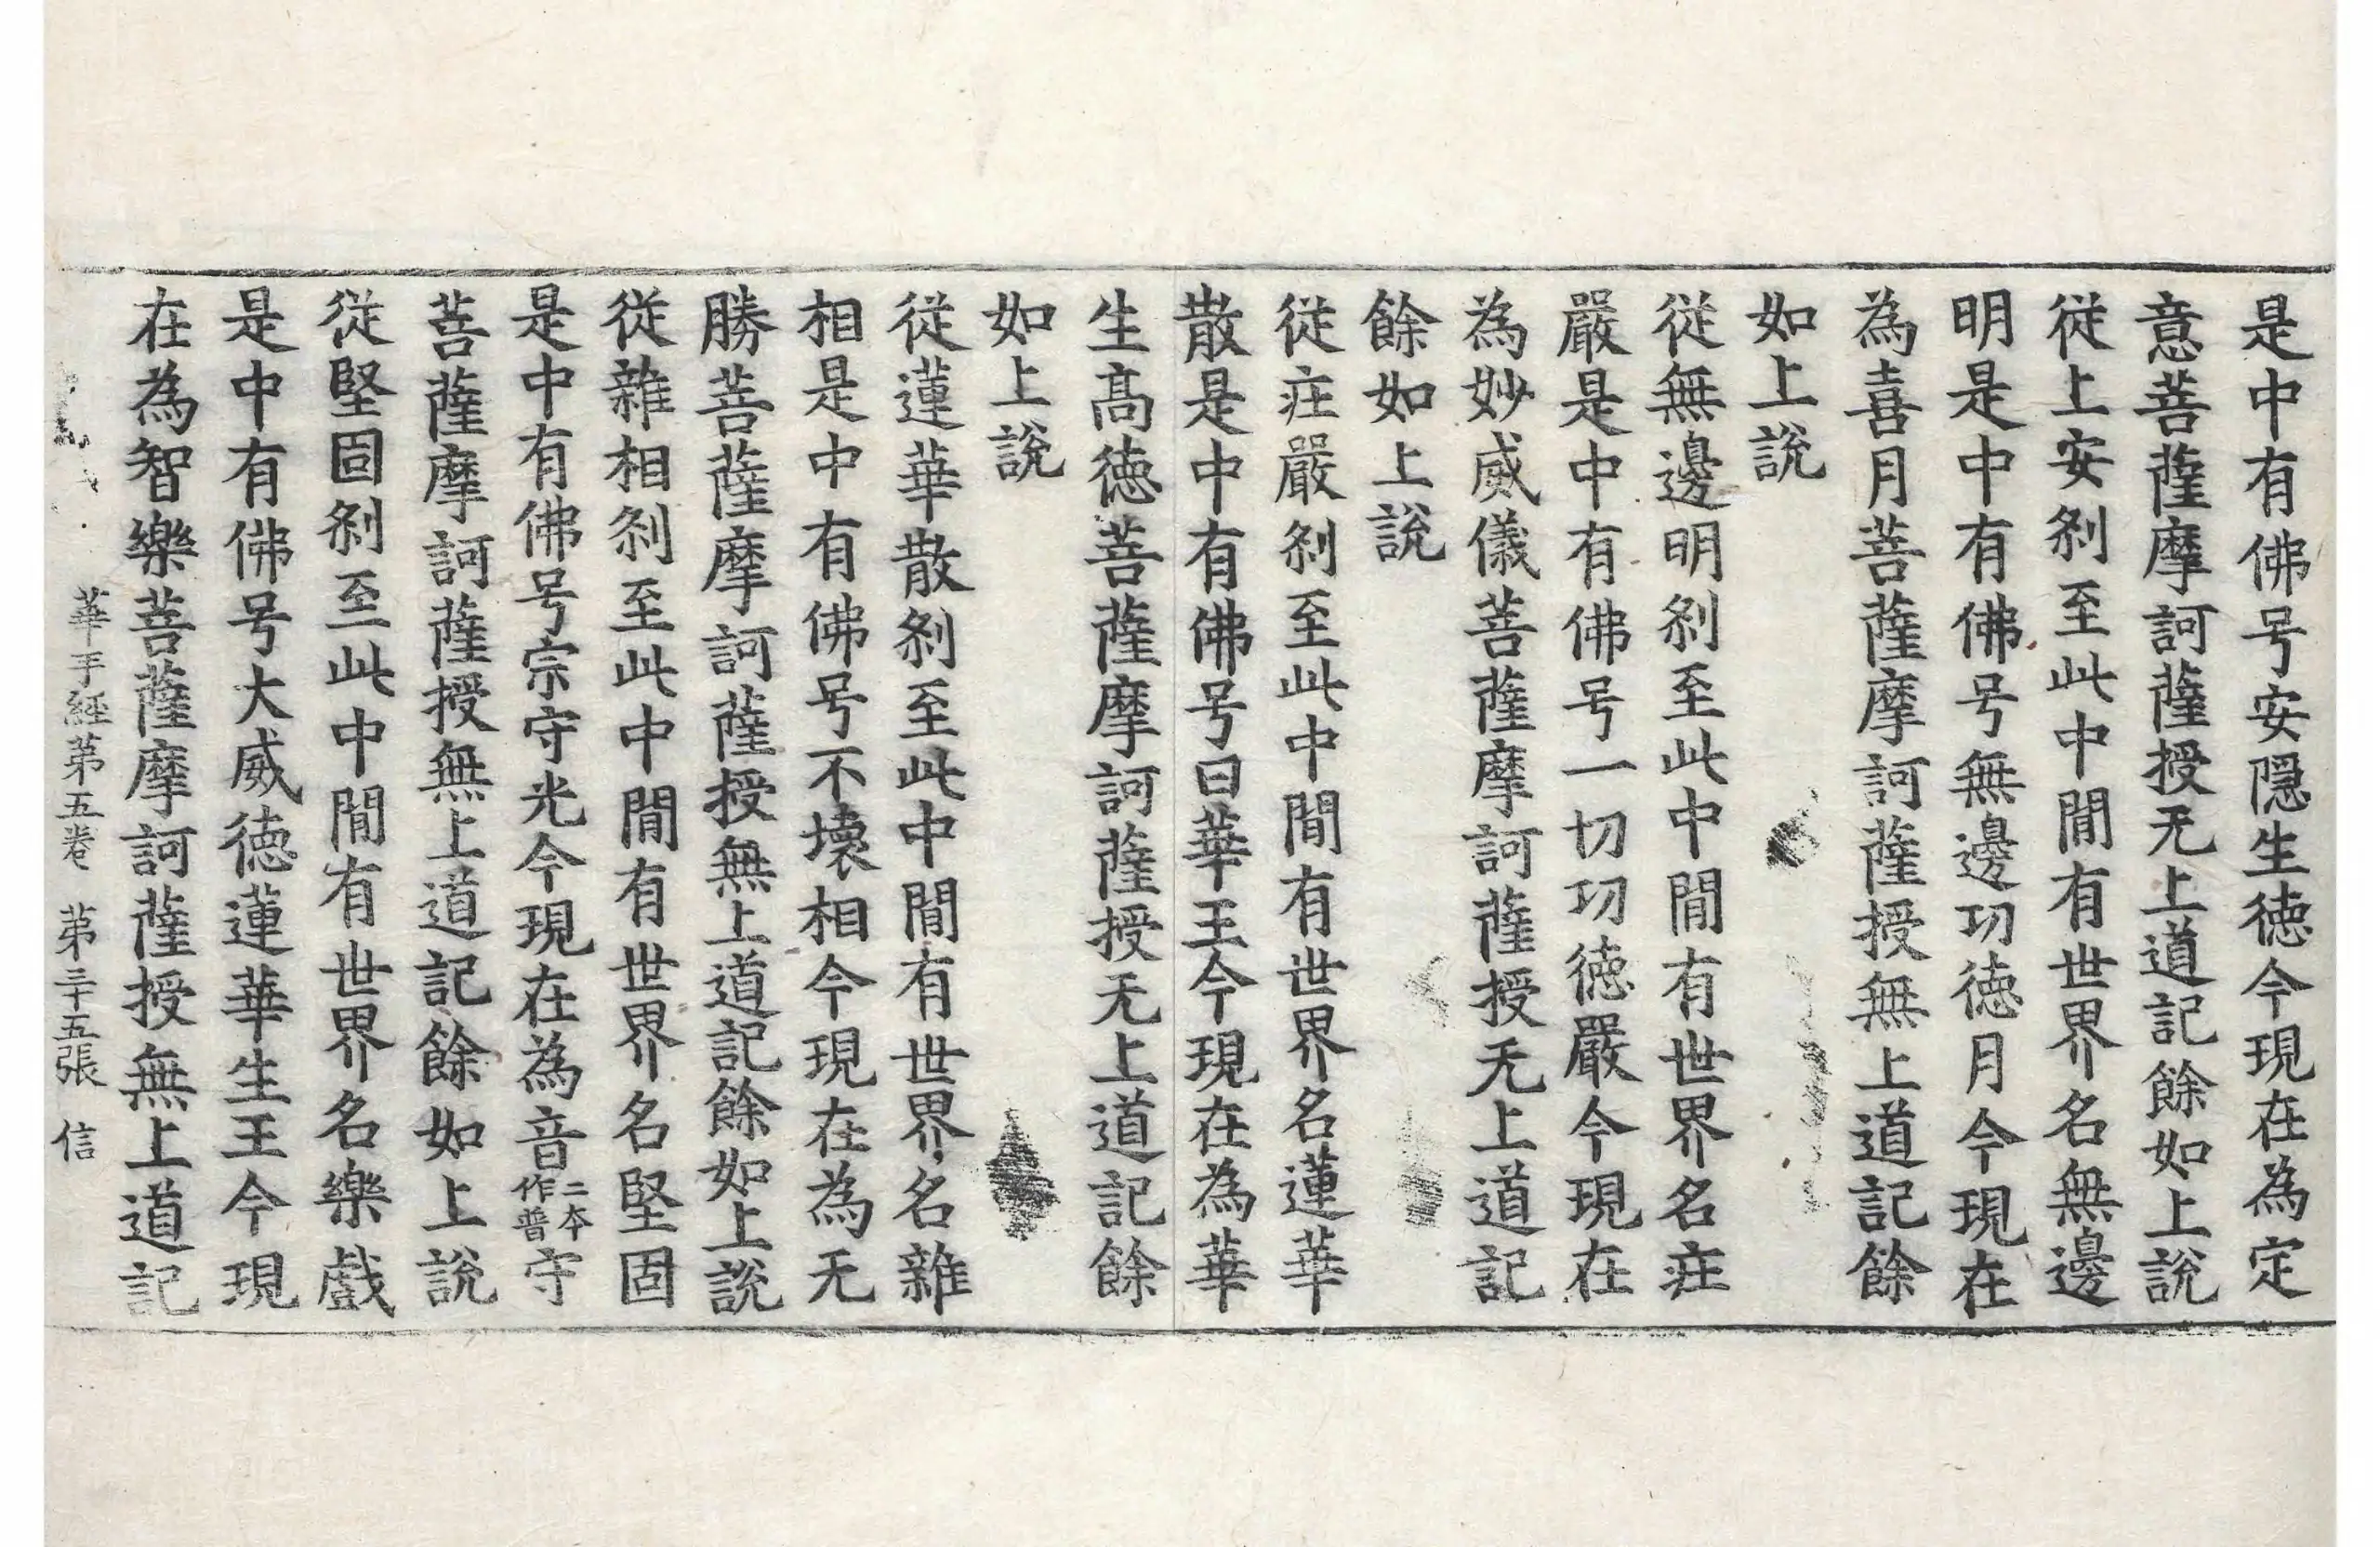 是中有佛号安隠生徳今現在為定
意菩薩摩訶薩授无上道記餘如上說
従上安刹至此中閒有世界名無邊
明是中有佛号無邊功徳月今現在
為喜月菩薩摩訶薩授無上道記餘
如上說
従無邊明刹至此中閒有世界名㽵
嚴是中有佛号一切功徳嚴今現在
為妙威儀菩薩摩訶薩授无上道記
餘如上說
従㽵嚴刹至此中閒有世界名蓮華
散是中有佛号曰華王今現在為華
生髙徳菩薩摩訶薩授无上道記餘
如上說
従蓮華散刹至此中閒有世界名雜
相是中有佛号不壊相今現在為无
勝菩薩摩訶薩授無上道記餘如上說
従雜相刹至此中閒有世界名堅固
是中有佛号宗守光今現在為音二本作普守
菩薩摩訶薩授無上道記餘如上說
従堅固刹至此中閒有世界名樂戲
是中有佛号大威徳蓮華生王今現
在為智樂菩薩摩訶薩授無上道記
華手經第五卷 第三十五張 信